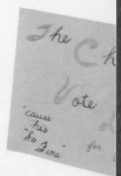 The Ch
Vote
'cause
his
"In Time"
for